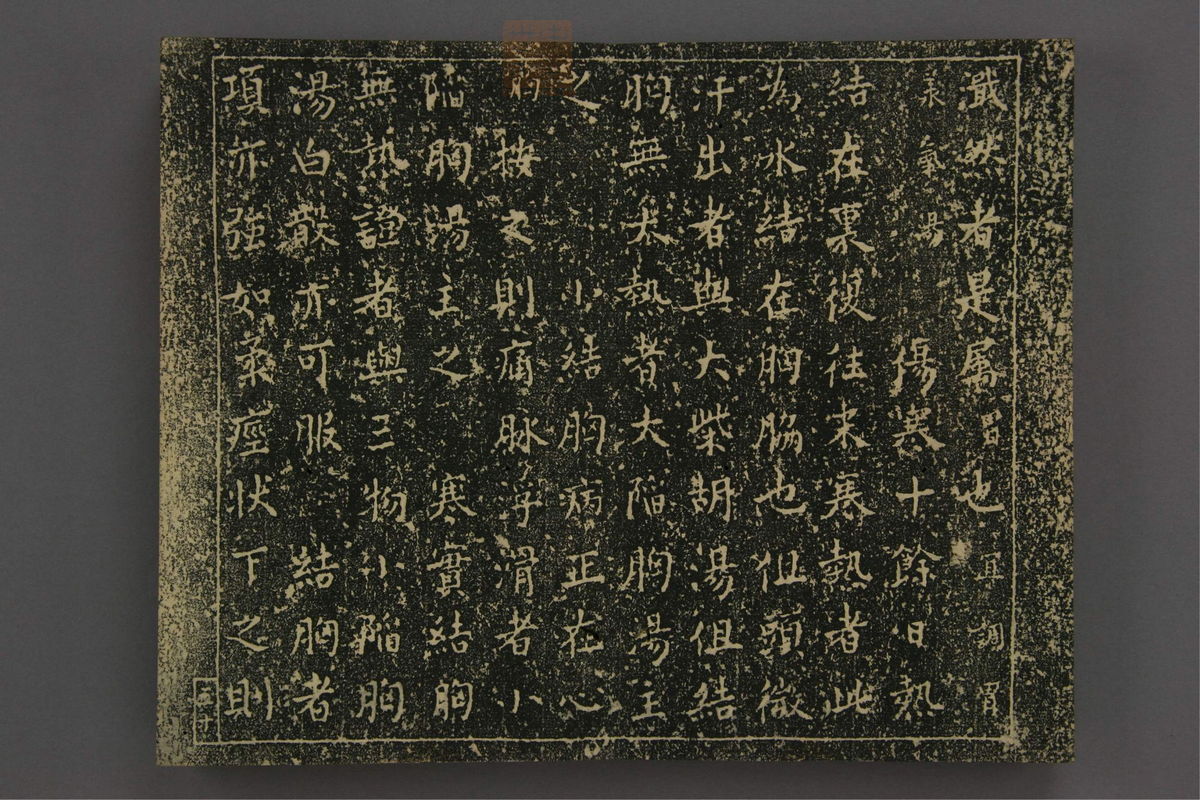 濈然者是属胃也宜調胃
承氣湯　傷寒十餘日熱
結在裏復往来寒熱者此
為水結在胸脇也但頭微
汗出者與大柴胡湯但結
胸無大熱者大陥胸湯主
之　小結胸病正在心
按之則痛脉浮滑者小
陥胸湯主之　寒實結胸
無熱證者與三物小陥胸
湯白散亦可服　結胸者
項亦強如柔痙状下之則